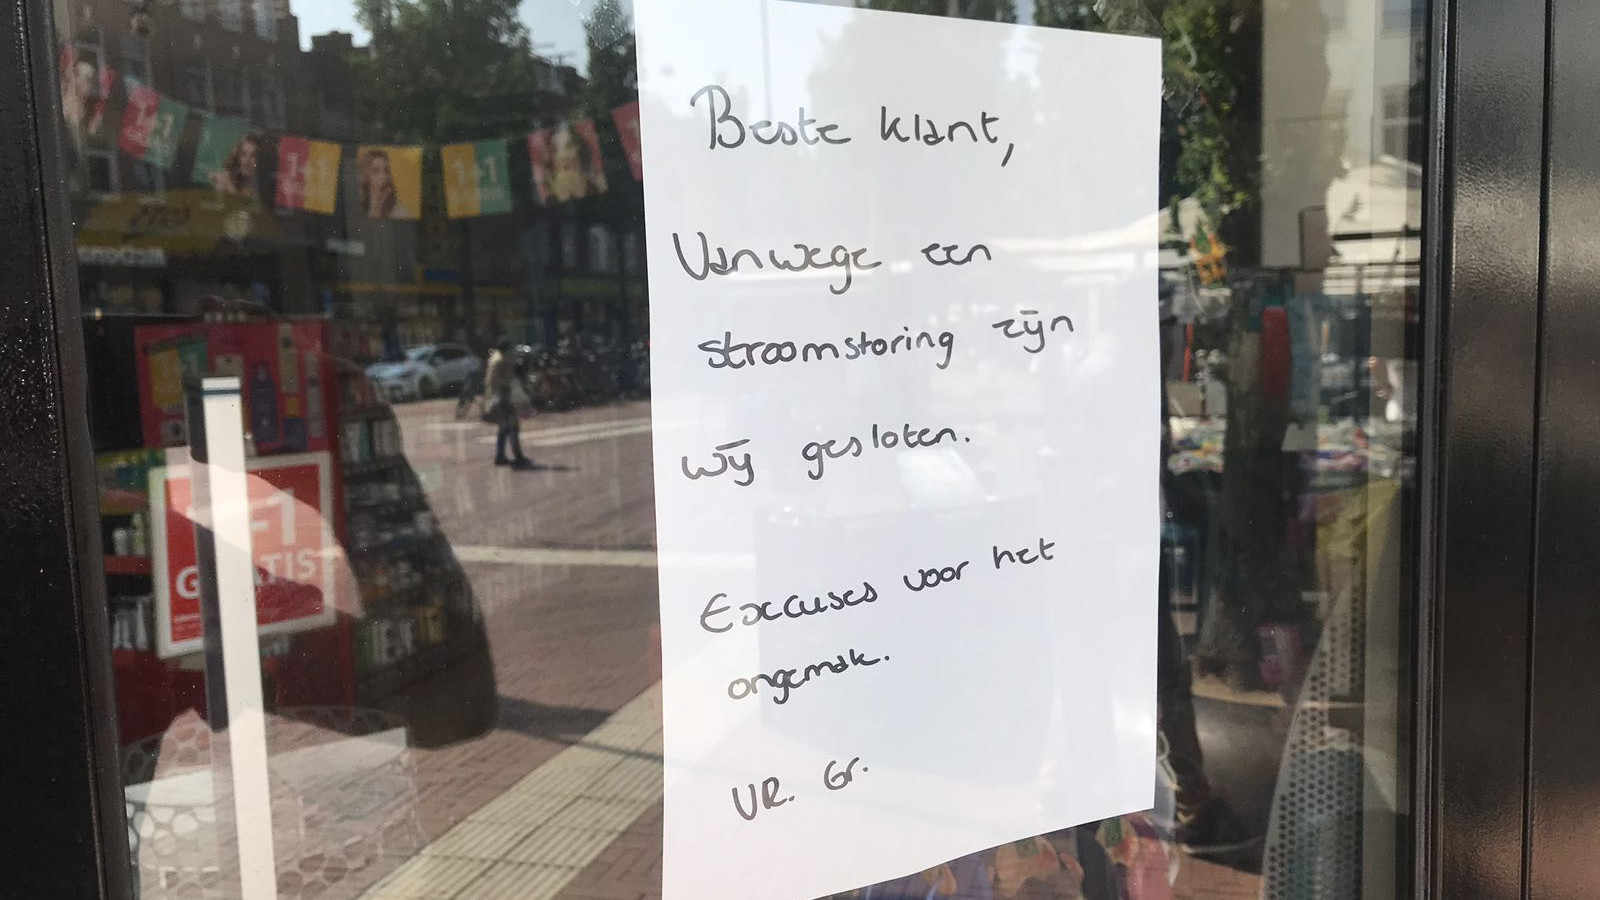 Beste klant,
Vanwege een
stroomstoring zijn
wij gesloten.
Excuses voor het
ongemak.
VR. Gr.
1+1
1+1
1+1
+1
GRATIS